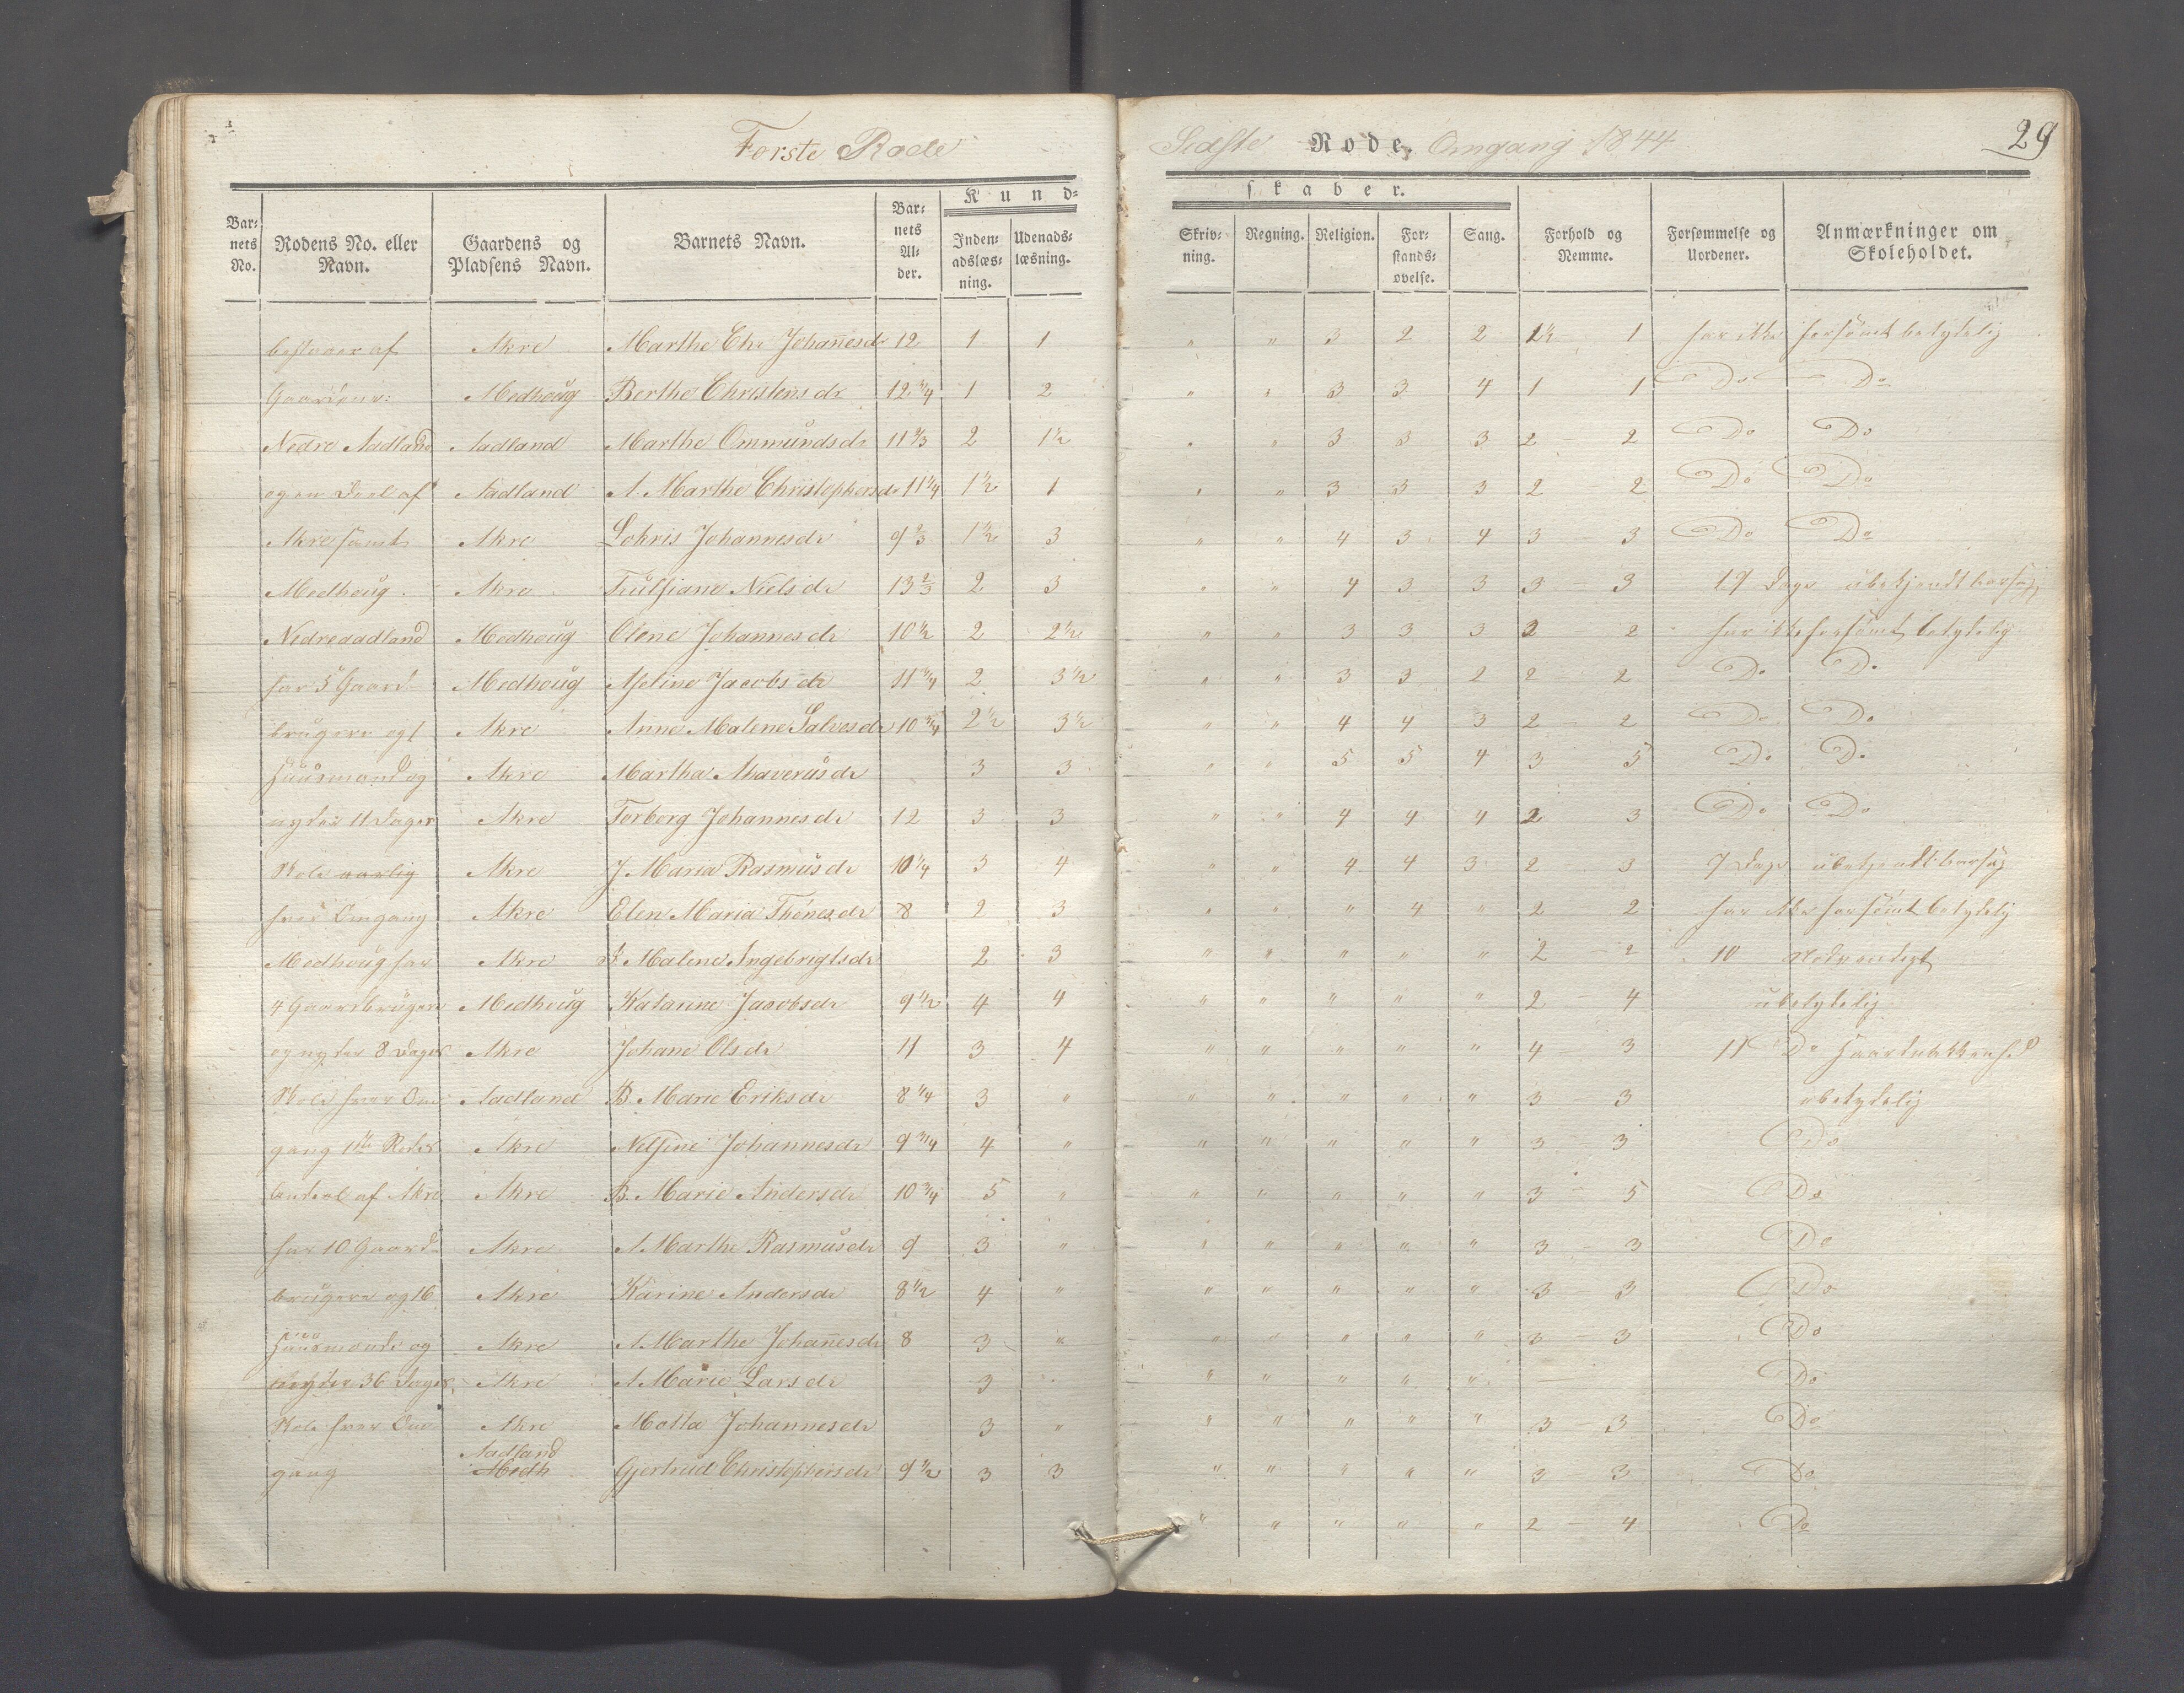 Forste Rode
Sidste Rode, Omgang 1844
29
Kund-
skaber.
Bar-nets No. Rodens No. eller Navn. Gaardens og Pladsens Navn. Barnets Navn. Bar-nets Al-der. Inden-adslæs-ning. Udenads-læsning. Skriv-ning. Regning. Religion. For-stands-øvelse. Sang. Forhold og Nemme. Forsømmelse og Uordener. Anmærkninger om Skoleholdet.
bestaaer af Akre Marthe Chr Johannesdr 12 1 1 " " 3 2 2 1½ 1 har ikke forsömt betydelig
Gaardene: Medhoug Berthe Christensdr 12 1/4 1 2 " " 3 3 4 1 1 Do Do
Nedre Aadland Aadland Marthe Ommundsdr 11 2/3 2 1½ " " 3 3 3 2 2 Do Do
og en Deel af Aadland A Marthe Christophersdr 11 1/4 1½ 1 " " 3 3 3 2 - 2 Do Do
Akre samt Akre Lohris Johannesdr 9 2/3 1½ 3 " " 4 3 4 3 - 3 Do Do
Medhoug. Akre Trulsiane Nielsdr 13 2/3 2 3 " " 4 3 3 3 - 3 19 Dage ubekjendt
Nedreaadland Medhoug Olene Johannesdr 10½ 2 2½ " " 3 3 3 2 - 2 har ikke forsömt betydelig
har 5 Gaard- Medhoug Aseline Jacobsdr 11 3/4 2 3½ " " 3 3 2 2 2 Do Do
brugere og 1 Akre Anne Malene Salvesdr 10 3/4 2½ 3½ " " 4 4 3 2 - 2 Do Do
Huusmand og Akre Martha Maverusdr 3 3 " " 5 5 4 3 5 Do Do
nyder 11 Dager Akre Torborg Johannesdr 12 3 3 " " 4 4 4 2 3 Do Do
Skole aarlig Akre J Maria Rasmusdr 10 1/4 3 4 " " 4 4 3 2 3 7 Dage ubekjendt
hver Omgang Akre Elen Maria Thönesdr 8 2 3 " " " 4 " 2 2 har ikke forsömt betydelig
Medhoug har Akre Malene Ingebrigtsdr 2 3 " " " " " 2 - 2 10 Nødvendigt
4 Gaardbrugere Medhoug Katarine Jacobsdr 9½ 4 4 " " " " " 2 - 4 ubetydelig
og nyder 8 Dages Akre Johane Olsdr 11 3 4 " " " " " 4 - 3 11 Do
Skole hver Om- Aadland B Marie Eriksdr 8 1/4 3 " " " " " " 3 3 ubetydelig
gang 1ste Rodes Akre Nelsine Johannesdr 9 3/4 4 " " " " " " 3 - 3 Do
Andeel af Akre Akre B. Marie Andersdr 10 3/4 5 " " " " " " 3 - 5 Do
har 10 Gaard- Akre A Marthe Rasmusdr 9 3 " " " " " " 3 - 3 Do
brugere og 16 Akre Karine Andersdr 8½ 4 " " " " " " 3 3 Do
Huusmænd og Akre A Marthe Johannesdr 8 3 " " " " " " 3 - 3 Do
nyder 36 Dages Akre A Marie Larsdr 3 " " " " " — Do
Skole hver Om- Akre Matta Johannesdr 3 " " " " " " 3 - 3 Do
gang Aadland Medh Gjertrud Christophersdr 9½ 3 3 " " " " " 3 - 3 Do
" " " " " 2 - 4 Do